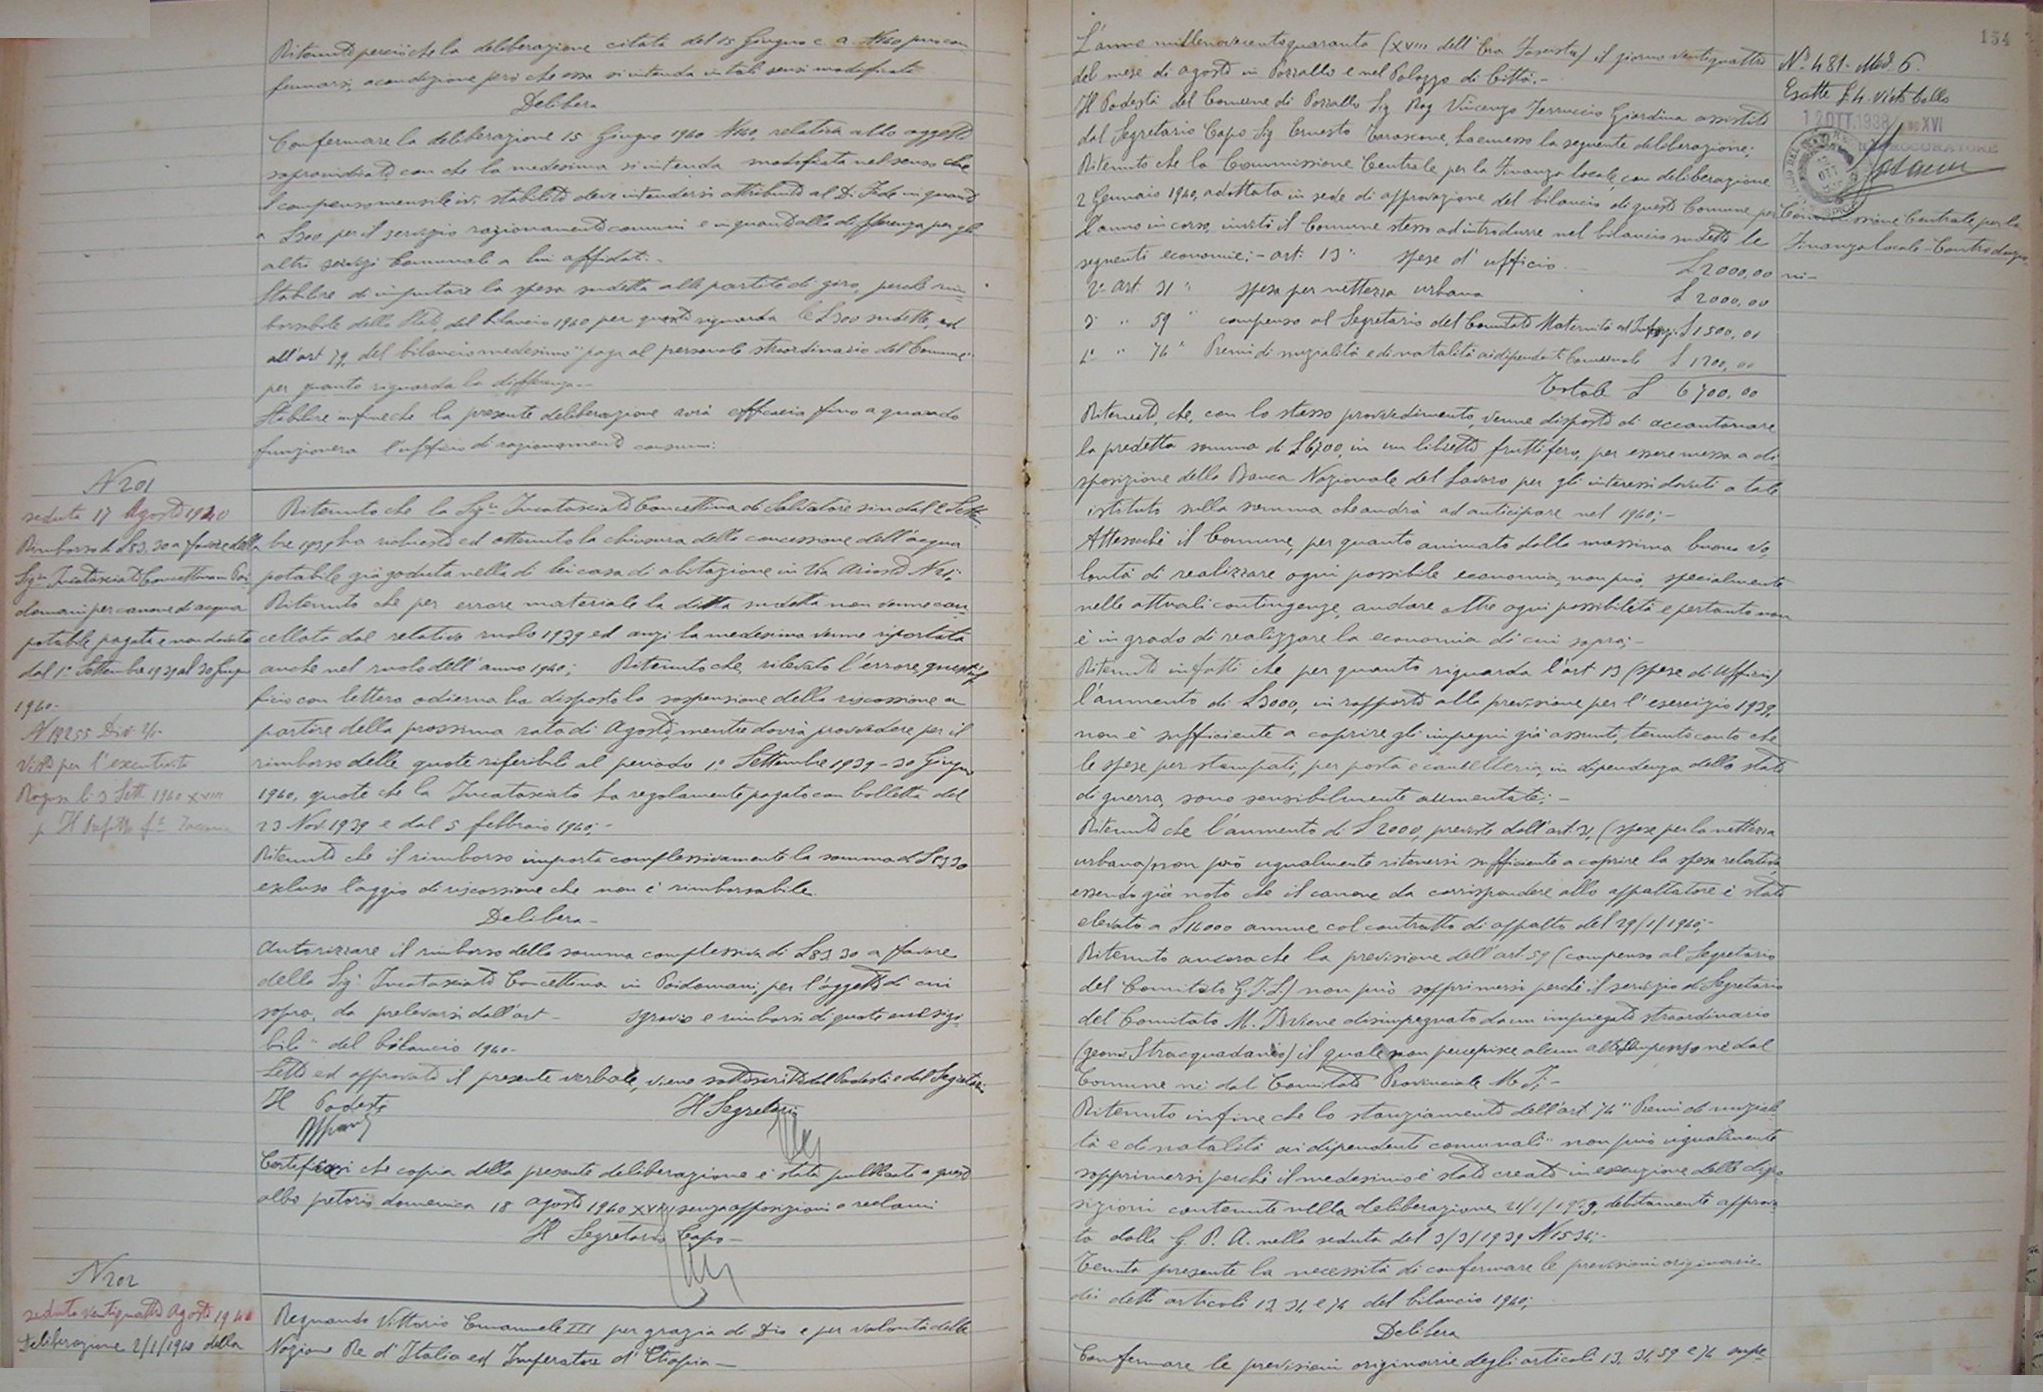 Ritenuto perciò che la deliberazione citata del 15 Giugno c. a N 140 può con
fermarsi, a condizione però che essa si intenda in tali sensi modificata
Delibera
Confermare la deliberazione 15 Giugno 1940 N140, relativa allo oggetto
sopraindicato, con che la medesima si intenda modificata nel senso che
il compenso mensile ivi stabilito deve intendersi attribuito al D. Fede in quanto
a £300 per il servizio razionamento consumi e in quanto alla differenza per gli
altri servizi Comunali a lui affidati.-
Stabilire di imputare la spesa suddetta alle partite di giro, perchè rim-
borsabile dallo Stato, del bilancio 1940 per quanto riguarda le £300 suddette, ed
all'art 79 del bilancio medesimo "paga al personale straordinario del Comune"
per quanto riguarda la differenza.-
Stabilire infine che la presente deliberazione avrà efficacia fino a quando
funzionerà l'ufficio di razionamento consumi.
N 201
seduta 17 Agosto 1940
Rimborso di £83,30 a favore della
Sig.ra Incatasciato Concettina in Poi
domani per canone di acqua
potabile pagata e non dovuta
dal 1° Settembre 1939 al 30 Giugno
1940-
N 19255 Div 2/1
Visto per l'esecutività
Ragusa li 3 Sett 1940 XVIII
p Il Prefetto f°
Ritenuto che la Sig.ra Incatasciato Concettina di Salvatore sin dal 1° Settem-
bre 1939 ha richiesto ed ottenuto la chiusura della concessione dell'acqua
potabile già goduta nella di lei casa di abitazione in Via Ariosto N 21;
Ritenuto che per errore materiale la ditta suddetta non venne can-
cellata dal relativo ruolo 1939 ed anzi la medesima venne riportata
anche nel ruolo dell'anno 1940; Ritenuto che, rilevato l'errore, quest'uf
ficio con lettera odierna ha disposto la sospensione della riscossione a
partire dalla prossima rata di Agosto, mentre dovrà provvedere per il
rimborso delle quote riferibili al periodo 1° Settembre 1939 - 30 Giugno
1940, quote che la Incatasciato ha regolarmente pagato con bolletta del
23 Nov. 1939 e dal 5 febbraio 1940;-
Ritenuto che il rimborso importa complessivamente la somma di £83,30
escluso l'aggio di riscossione che non è rimborsabile.
Delibera-
Autorizzare il rimborso della somma complessiva di £83 30 a favore
della Sig. Incatasciato Concettina in Poidomani, per l'oggetto di cui
sopra, da prelevarsi dall'art - sgravio e rimborsi di quote inesigi-
bili" del bilancio 1940-
Letto ed approvato il presente verbale, viene sottoscritto dal Podestà e dal Segretario
Il Podestà Il Segretario
Certificasi che copia della presente deliberazione è stata pubblicata a questo
albo pretorio domenica 18 agosto 1940 XVIII, senza opposizioni o reclami
Il Segretario Capo-
N 202
seduta ventiquattro Agosto 1940
Deliberazione 2/1/1940 della
Regnando Vittorio Emanuele III per grazia di Dio e per volontà della
Nazione Re d'Italia ed Imperatore d'Etiopia-
154
L'anno millenovecentoquaranta (XVIII dell'Era Fascista) il giorno ventiquattro
del mese di agosto in Pozzallo e nel Palazzo di Città.-
Il Podestà del Comune di Pozzallo Sig Rag Vincenzo Ferruccio Giardina assistito
dal Segretario Capo Sig Ernesto Tarascone, ha emesso la seguente deliberazione;
Ritenuto che la Commissione Centrale per la Finanza locale, con deliberazione
2 Gennaio 1940, adottata in sede di approvazione del bilancio di questo Comune, per
l'anno in corso, invitò il Comune stesso ad introdurre nel bilancio suddetto le
seguenti economie;- art: 13" spese d'ufficio £2000,00
2° art 31" spesa per nettezza urbana £ 2000,00
3 " 59 " compenso al Segretario del Comitato Maternità ed Infanzia £1500,00
4° " 76" Premi di nuzialità e di natalità ai dipendenti Comunali £ 1200,00
Totale £ 6700,00
Ritenuto, che, con lo stesso provvedimento, venne disposto di accantonare
la predetta somma di £6700, in un libretto fruttifero, per essere messa a di-
sposizione della Banca Nazionale del Lavoro per gli interessi dovuti a tale
istituto sulla somma che andrà ad anticipare nel 1940;-
Attesochè il Comune, per quanto animato dalla massima buona vo-
lontà di realizzare ogni possibile economia, non può, specialmente
nelle attuali contingenze, andare oltre ogni possibilità e pertanto non
è in grado di realizzare la economia di cui sopra;-
Ritenuto infatti che per quanto riguarda l'art 13 (spese di ufficio)
l'aumento di £3000, in rapporto alla previsione per l'esercizio 1939,
non è sufficiente a coprire gli impegni già assunti, tenuto conto che
le spese per stampati, per posta e cancelleria, in dipendenza dello stato
di guerra, sono sensibilmente aumentate;-
Ritenuto che l'aumento di £2000, previsto dall'art. 31, (spese per la nettezza
urbana) non può ugualmente ritenersi sufficiente a coprire la spesa relativa
essendo già noto che il canone da corrispondere allo appaltatore è stato
elevato a £14000 annue col contratto di appalto del 29/1/1940;-
Ritenuto ancora che la previsione dell'art 59 (compenso al Segretario
del Comitato G.I.L) non può sopprimersi perchè il servizio di Segretario
del Comitato M. I. viene disimpegnato da un impiegato straordinario
(geom. Stracquadanio) il quale non percepisce alcun altro compenso nè dal
Comune nè dal Comitato Provinciale M. I;-
Ritenuto infine che lo stanziamento dell'art 76 "Premi di nuziali-
tà e di natalità ai dipendenti comunali" non può ugualmente
sopprimersi perchè il medesimo è stato creato in esecuzione delle dispo-
sizioni contenute nella deliberazione 21/1/1939, debitamente approva-
ta dalla G. P. A. nella seduta del 3/3/1939 N1534;-
Tenuta presente la necessità di confermare le previsioni originarie
dei detti articoli 13, 31, e 76 del bilancio 1940;
Delibera
Confermare le previsioni originarie degli articoli 13, 31, 59 e 76 supe-
N° 481- Mod. 6.
Esatte £ 4. visto bollo
12 OTT. 1938 Anno XVI
IL PROCURATORE
Commissione Centrale per la
Finanza locale - Controdeduzio
ni-